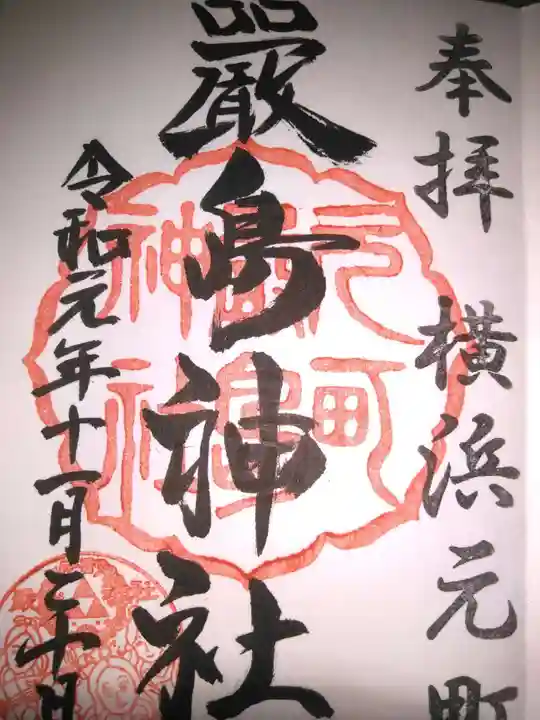 奉拝 横浜元町
嚴島神社
令和元年十一月二十日
元町
嚴島
神社